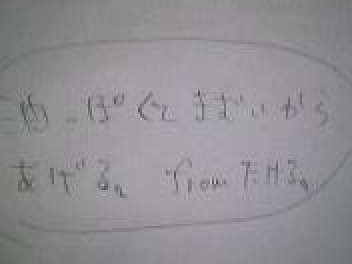 肉、ぽくて まずいから
あげる。 from たける。